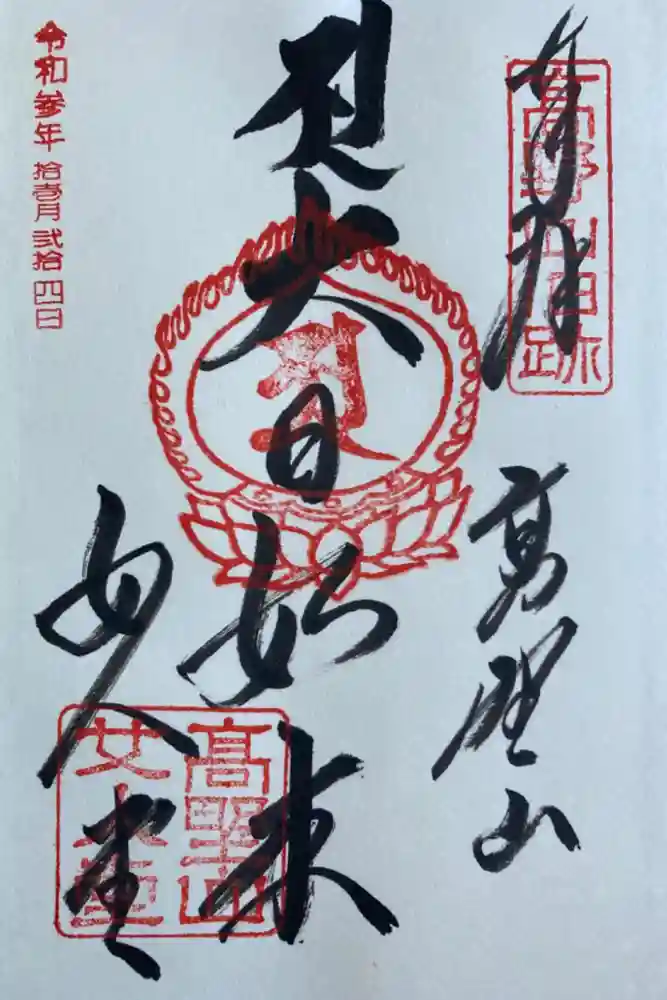 奉拝
高野山旧跡
高野山
大日如来
女人堂
高野山
女人堂
令和参年拾壱月弐拾四日